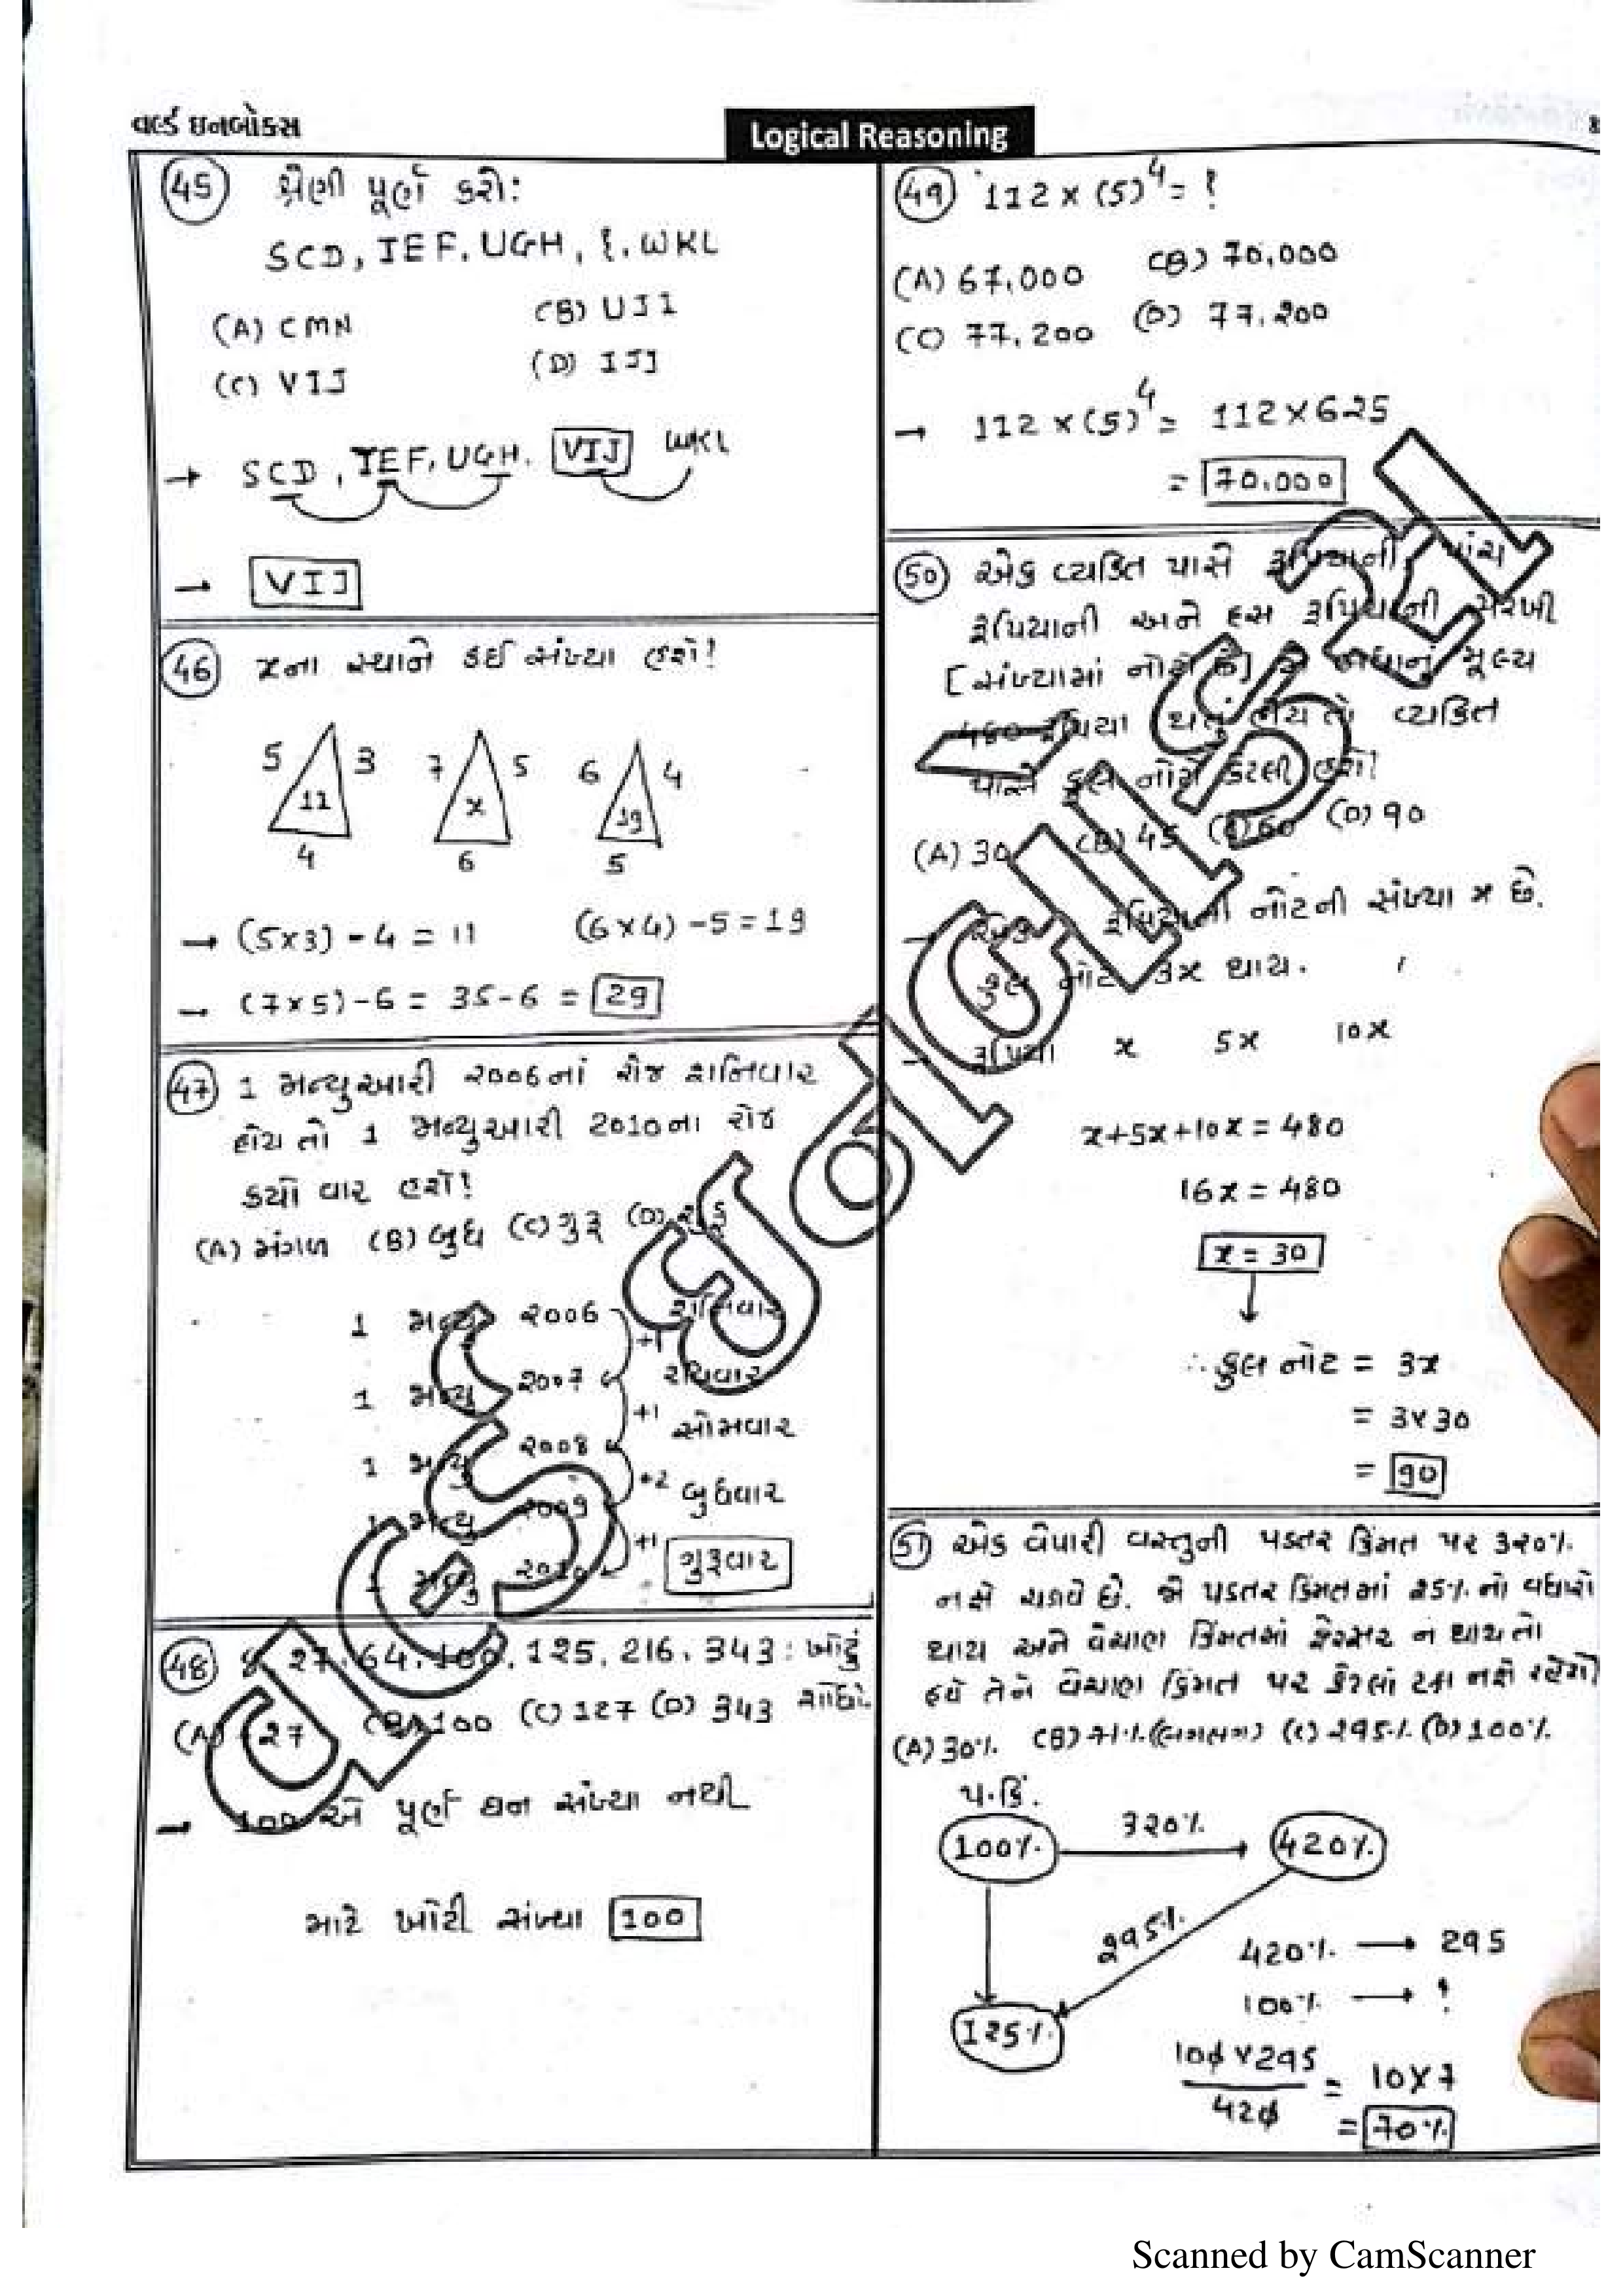 વર્લ્ડ ઇનબોક્સ
Logical Reasoning
45 શ્રેણી પૂર્ણ કરો:
SCD, TEF, UGH, ?, WKL
(A) CMN (B) UJI
(C) VIJ (D) IJJ
→ SCD, TEF, UGH. VIJ WKL
→ VIJ
46 xના સ્થાને કઈ સંખ્યા હશે?
5 3 7 5 6 4
11 x 19
4 6 5
→ (5×3) - 4 = 11 (6×4) - 5 = 19
→ (7×5) - 6 = 35 - 6 = 29
47 1 જાન્યુઆરી ૨૦૦6નાં રોજ શનિવાર
હોય તો 1 જાન્યુઆરી 2010ના રોજ
કયો વાર હશે?
(A) મંગળ (B) બુધ (C) ગુરૂ (D) શુક્ર
1 જાન્યુ ૨૦૦6 શનિવાર
+1
1 જાન્યુ ૨૦૦7 રવિવાર
+1
1 જાન્યુ ૨૦૦8 સોમવાર
+2
1 જાન્યુ ૨૦૦9 બુધવાર
+1
1 જાન્યુ ગુરૂવાર
48 8, 27, 64, 100, 125, 216, 343: ખોટું
(A) 27 (B) 100 (C) 127 (D) 343 શોધો.
→ 100 એ પૂર્ણ ઘન સંખ્યા નથી
માટે ખોટી સંખ્યા 100
49 112 × (5)⁴ = ?
(A) 67,000 (B) 70,000
(C) 77,200 (D) 77,200
→ 112 × (5)⁴ = 112 × 625
= 70,000
50 એક વ્યકિત પાસે રૂપિયાની, પાંચ
રૂપિયાની અને દસ રૂપિયાની સરખી
[સંખ્યામાં નોટો છે] બધાનું મૂલ્ય
480 રૂપિયા થતું હોય તો વ્યકિત
પાસે કુલ નોટો કેટલી હશે?
(A) 30 (B) 45 (C) 60 (D) 90
રૂપિયાની નોટની સંખ્યા x છે.
કુલ નોટ 3x થાય.
→ રૂપિયા x 5x 10x
x+5x+10x = 480
16x = 480
x = 30
∴ કુલ નોટ = 3x
= 3×30
= 90
51 એક વેપારી વસ્તુની પડતર કિંમત પર 3૨૦%
નફો ચડાવે છે. જો પડતર કિંમતમાં ૨5% નો વધારો
થાય અને વેચાણ કિંમતમાં ફેરફાર ન થાય તો
હવે તેને વેચાણ કિંમત પર કેટલાં ટકા નફો રહેશે?
(A) 30% (B) 71% (લગભગ) (C) ૨95% (D) 100%
પ.કિં.
100% 3૨0% 420%
૨95%
420% → 295
100% → ?
125%
100×295 / 420 = 10×7
= 70%
Scanned by CamScanner